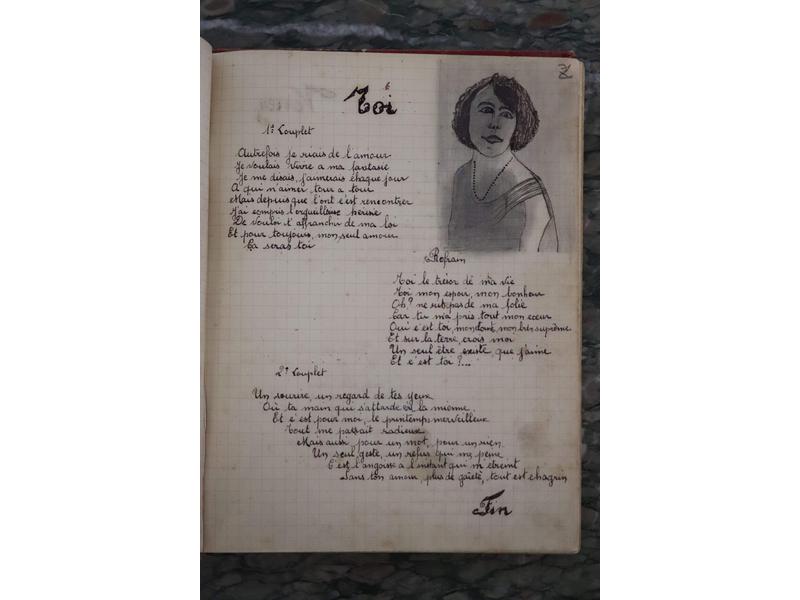 Toi
1e Couplet
Autrefois je riais de l'amour
Je voulais vivre a ma fantaisie
Je me disais, j'aimerais chaque jour
A qui m'aimer tour a tour
Mais depuis que l'ont c'est rencontrer
J'ai compris l'orgueilleuse
De vouloir t'affranchir de ma loi
Et pour toujours, mon seul amour
Ça seras toi
Refrain
Toi le trésor de ma vie
Toi mon espoir, mon bonheur
Oh? ne pas de ma folie
Car tu m'a pris tout mon cœur
Oui c'est toi, mon bien suprême
Et sur la terre, crois moi
Un seul être existe, que j'aime
Et c'est toi?...
2e Couplet
Un sourire, un regard de tes yeux
Où ta main qui s'attarde en la mienne
Et c'est pour moi, le printemps merveilleux
Tout me paraît radieux
Mais aussi pour un mot, pour un rien
Un seul geste, un refus qui me peine
C'est l'angoisse a l'instant qui m'etreint
Sans ton amour, plus de gaieté, tout est chagrin
Fin